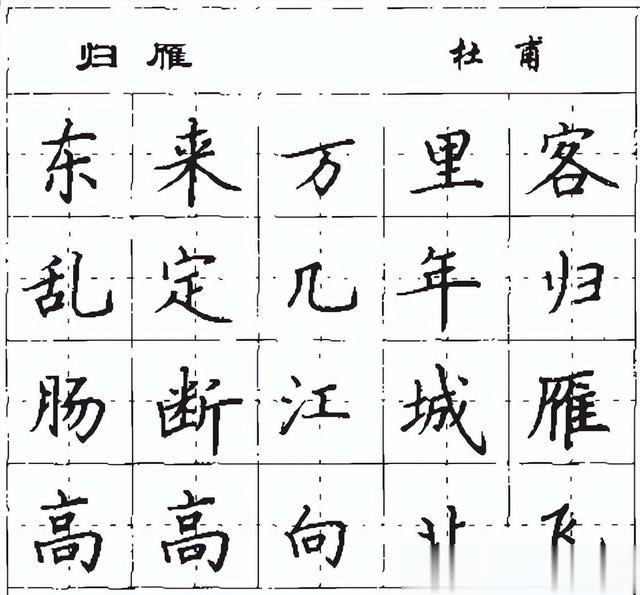 归雁 杜甫
东来万里客
乱定几年归
肠断江城雁
高高向北飞